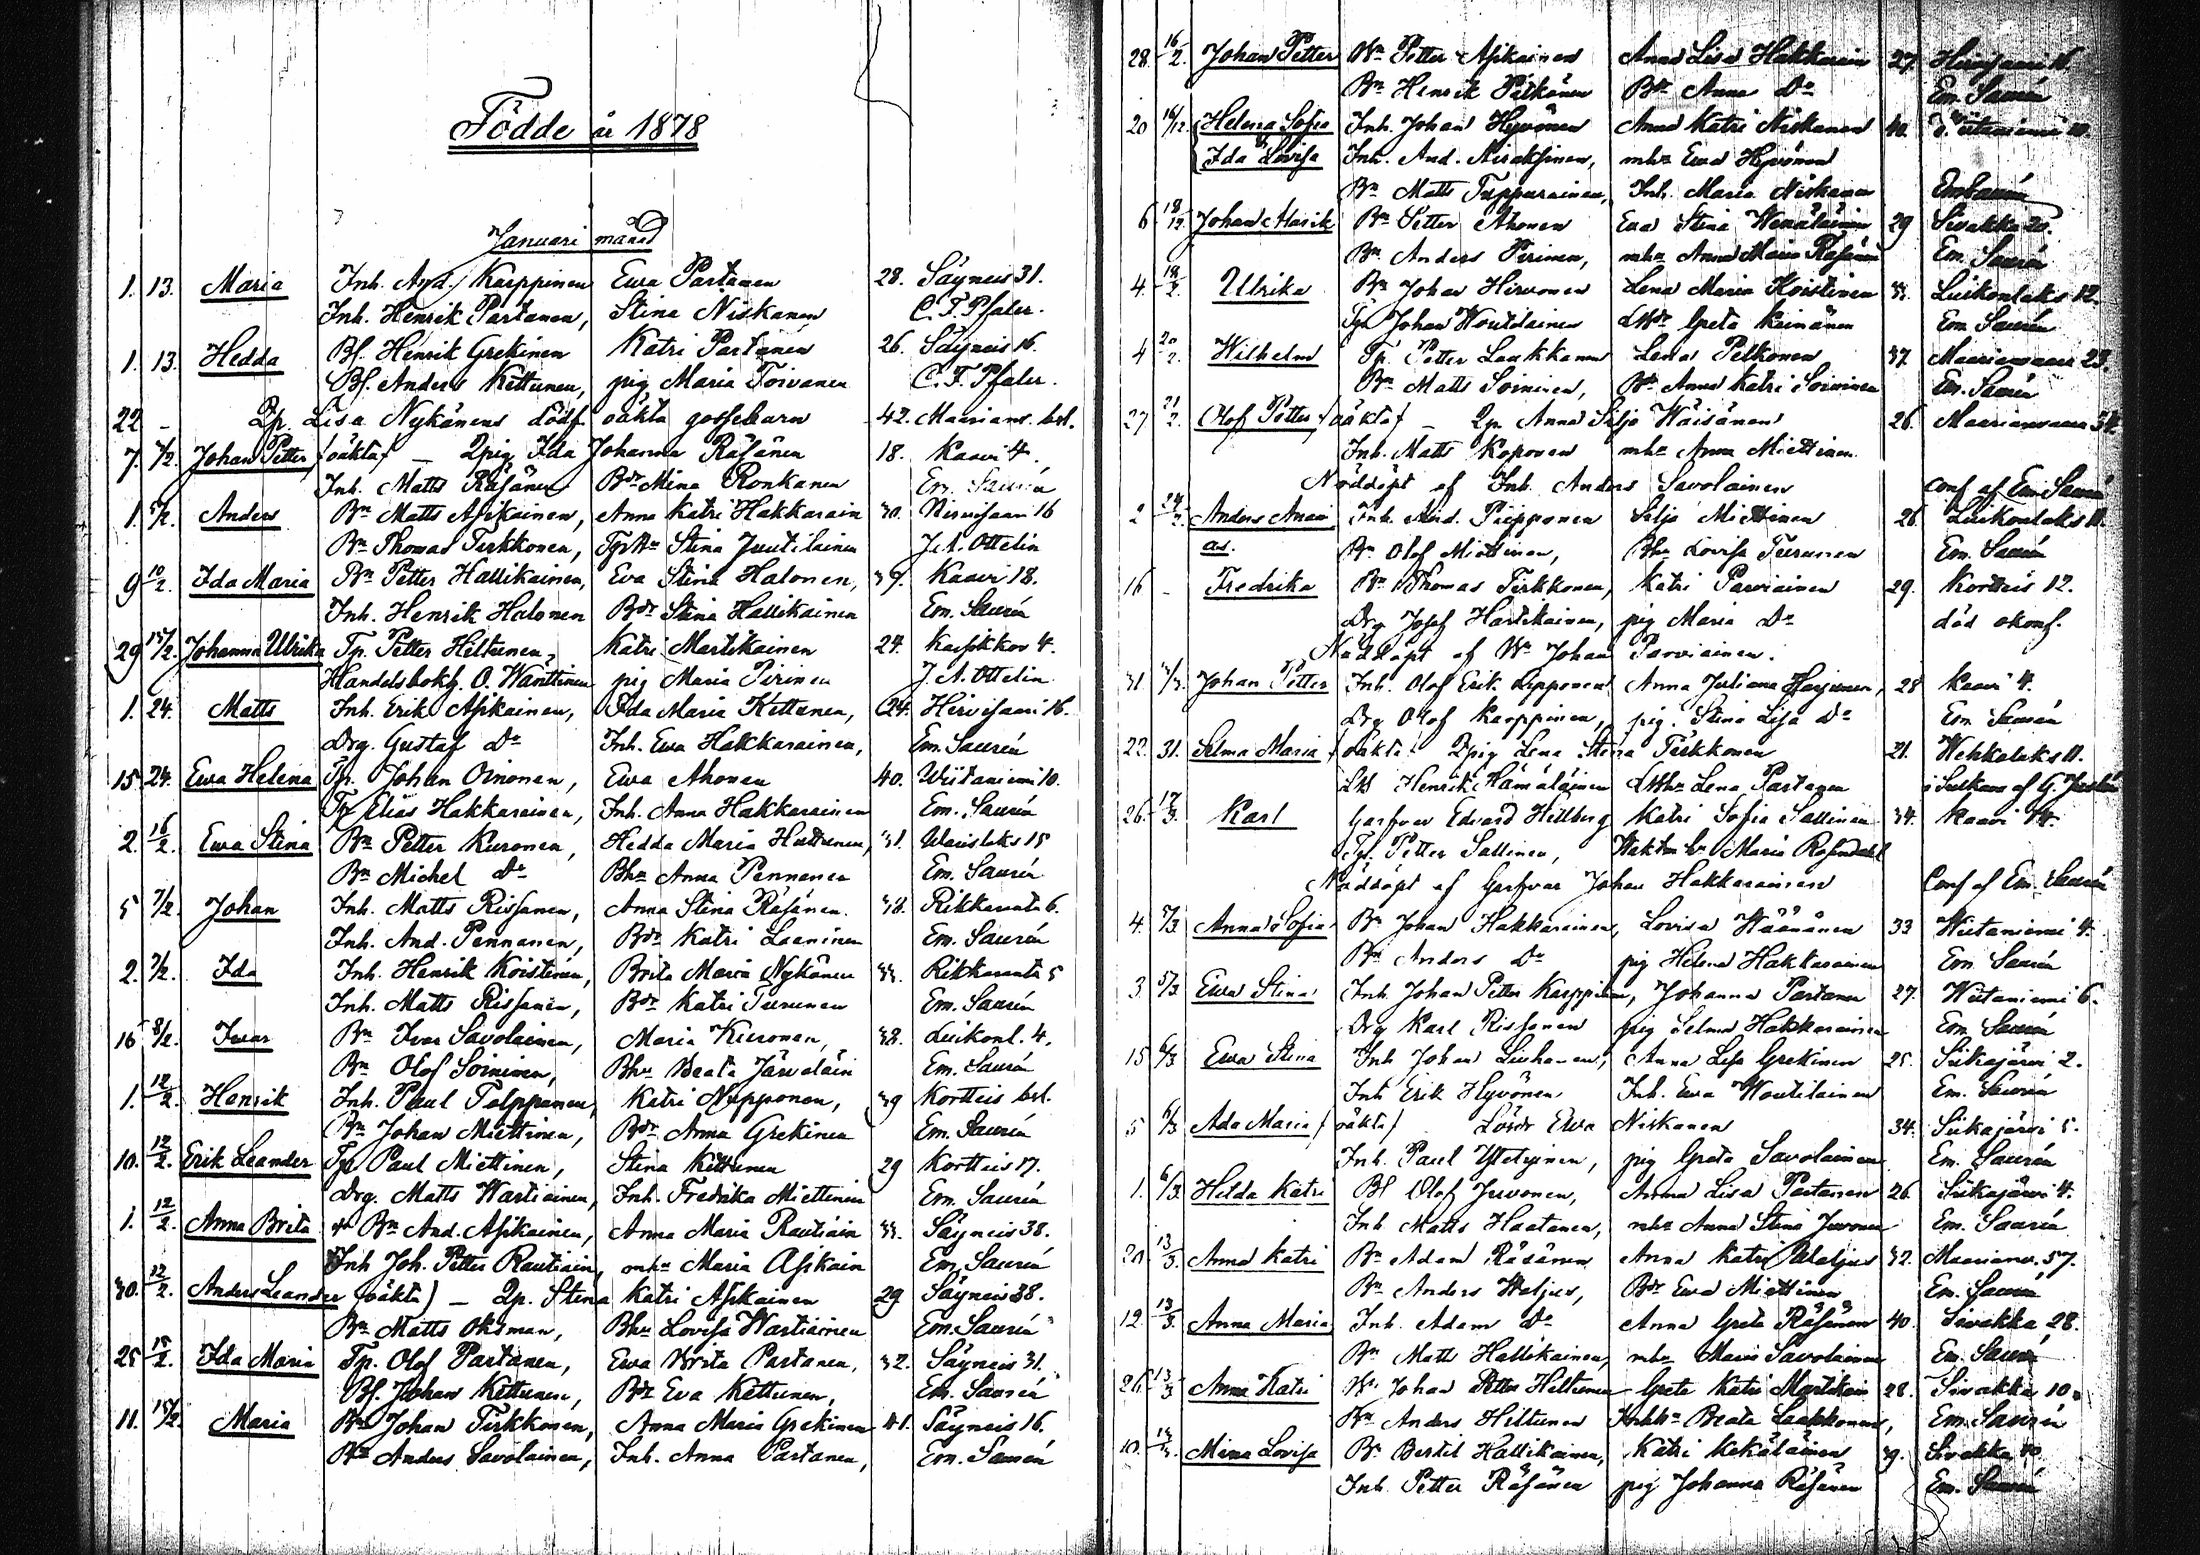 Födde år 1878
Januari månad
1. 13. Maria Inh. And. Karppinen Ewa Partanen 28. Säyneis 31.
Inh. Henrik Partanen, Stina Niskanen C. F. Pfaler.
1. 13. Hedda Bf. Henrik Grekinen Katri Partanen 26. Säyneis 16.
Bf. Anders Kettunen, pig Maria Toivanen C. F. Pfaler.
22 - Qp. Lisa Nykänens dödf. oäkta gossebarn 42. Maarianv. bst.
7. Johan Petter (oäkta) — Qpig Ida Johanna Räsänen 18. Kaavi 4.
Inh. Matts Räsänen Bdr Mina Ronkanen Em. Saurén
1. Anders Bn Matts Asikainen, Anna Katri Hakkarain 30. Hirvisaari 16
Bn Thomas Tirkkonen, Stina Juutilainen J. A. Ottelin
9 10/2. Ida Maria Bn Petter Hallikainen, Eva Stina Halonen, 39. Kaavi 18.
Inh. Henrik Halonen Bdr Stina Hallikainen Em. Saurén
29 15/2. Johanna Ulrika Tp. Petter Hiltunen, Katri Martikainen 24. 4.
Handelsbokh. O. Wänttinen pig Maria Pirinen J. A. Ottelin
1. 24. Matts Inh. Erik Asikainen, Ida Maria Kettunen, 24. Hirvisaari 16.
Drg. Gustaf Do Inh. Ewa Hakkarainen, Em. Saurén
15 24. Ewa Helena Tp. Johan Oinonen, Ewa Ahonen 40. Wiitaniemi 10.
Tp Elias Hakkarainen, Inh. Anna Hakkarainen Em. Saurén
2. 16/2. Ewa Stina Bn Petter Kuronen, Hedda Maria Huttunen, 31. 15
Bn Michel Do Bhu Anna Pennanen Em. Saurén
5 7/2. Johan Inh. Matts Rissanen, Anna Stina Räsänen. 38. Rikkaranta 6.
Inh. And. Pennanen, Bdr Katri Laaninen Em. Saurén
2. 7/2. Ida Inh. Henrik Koistinen, Brita Maria Nykänen 33. Rikkaranta 5
Inh. Matts Rissanen, Bdr Katri Turunen Em. Saurén
16 8/2. Ivar Bn Ivar Savolainen, Maria Kuronen, 38. Luikonl. 4.
Bn Olof Soininen, Bhu Beata Järvoläin Em. Saurén
1. 12/2. Henrik Inh. Paul Tolppanen, Katri Nupponen, 39 Kortteis bst.
Bn Johan Miettinen, Bdr Anna Grekinen Em. Saurén
10. 12/2. Erik Leander Paul Miettinen, Stina Kettunen 29 Kortteis 17.
Drg. Matts Wartiainen, Inh. Fredrika Miettinen Em. Saurén
1. 12/2. Anna Brita Bn And. Asikainen, Anna Maria Rautiain 33. Säyneis 38.
Inh Joh. Petter Rautiain, mhu Maria Asikain Em. Saurén
30. 12/2. Anders Leander (oäkta) — Qp. Stina Katri Asikainen 29 Säyneis 38.
Bn Matts Oksman, Bhu Lovisa Wartiainen Em. Saurén
25 15/2. Ida Maria Tp. Olof Partanen, Ewa Brita Partanen, 32. Säyneis 31.
Bf. Johan Kettunen, Bdr Eva Kettunen, Em. Saurén
11. 15/2 Maria Bn Johan Tirkkonen, Anna Maria Grekinen 41. Säyneis 16.
Bn Anders Savolainen, Inh. Anna Partanen, Em. Saurén
28. 16/2. Johan Petter Bn Petter Asikainen Anna Lisa Hakkarain 27. Hirvisaari 16.
Bn Henrik Pitkänen Bdr Anna Do Em. Saurén
20 Helena Sofia Inh. Johan Hyvönen Anna Katri Niskanen 40. Wiitaniemi 10.
Ida Lovisa Inh. And. Niraksinen, mhu Ewa Hyvönen
Bn Matts Tuppurainen, Inh. Maria Niskanen Em Saurén
6 Johan Henrik Bn Petter Ahonen Eva Stina Wenäläinen 29 Sivakka 20.
Bn Anders Pirinen, mhu Anna Maria Räsänen Em. Saurén
4. 18/2. Ulrika Bn Johan Hirvonen Lena Maria Koistinen 33. Luikonlaks 12.
Johan Woutilainen Greta Keinänen Em. Saurén
4 20/2. Wilhelm Tp. Petter Laukkanen Lena Pelkonen 37. Maarianvaara 23.
Bn Matts Soininen, Bdr Anna Katri Soininen Em. Saurén
27 21/2. Olof Petter (oäkta) — Qp. Anna Silja Wäisänen 26. Maarianvaara 54.
Inh. Matts Koponen mhu Anna Miettinen.
Nöddöpt af Inh. Anders Savolainen conf. af Em. Saurén
2 24/2. Anders Anani Inh. And. Piipponen Silja Miettinen 26. Luikonlaks 11.
as. Bn Olof Miettinen, Bhu Lovisa Turunen Em. Saurén
16 - Fredrika Bn Thomas Tirkkonen, Katri Parviainen 29. Kortteis 12.
Drg Josef Hartikainen, pig Maria Do död okonf.
Nöddöpt af Bn Johan Parviainen.
31 Johan Petter Inh. Olof Erik Lipponen Anna Juliana Harjunen, 28 Kaavi 4.
Drg Olof Karppinen, pig. Stina Lisa Do Em Saurén
22. 31. Selma Maria (oäkta) Qpig Lena Stina Tirkkonen 21. Wehkalaks 11.
Henrik Hämäläinen Lena Partanen i Suikava af G.
26. 17/3. Karl Garfvar Edvard Hillberg Katri Sofia Sallinen 34. Kaavi 14.
Petter Sallinen, Maria Rosendahl
Nöddöpt af Garfvar Johan Hakkarainen Conf. af Em. Saurén
4. Anna Sofia Bn Johan Hakkarainen, Lovisa Wäänänen 33 Wiitaniemi 4.
Bn Anders Do pig Helena Hakkarainen Em Saurén
3 Ewa Stina Inh. Johan Petter Karppinen, Johanna Partanen 27. Wiitaniemi 6.
Drg Karl Rissanen pig Selma Hakkarainen Em Saurén
15 6/3 Ewa Stina Inh Johan Anna Lisa Grekinen 25. Siikajärvi 2.
Inh Erik Hyvönen Inh. Ewa Woutilainen Em. Saurén
5 6/3 Ada Maria (oäkta) Lösdr Ewa Niskanen 34. Siikajärvi 5.
Inh. Paul pig Greta Savolainen Em. Saurén
1. 6/3 Hilda Katri Bf Olof Juvonen, Anna Lisa Partanen 26. Siikajärvi 4.
Inh Matts Haatanen, mhu Anna Stina Juvonen Em. Saurén
20. 13/3. Anna Katri Bn Adam Räsänen Anna Katri Waljus 32. Maarianv. 57.
Bn Anders Waljus, Bdr Ewa Miettinen Em. Saurén
12. 13/3. Anna Maria Inh. Adam Do Anna Greta Räsänen 40. Sivakka 28.
Bn Matts Hallikainen, mhu Maria Savolainen Em. Saurén
26 13/3 Anna Katri Bn Johan Petter Hiltunen Greta Katri Martikain 28. Sivakka 10.
Bn Anders Hiltunen Inhhu Beata Laakkonen, Em. Saurén
10. Mina Lovisa Bn Bertil Hallikainen, Katri Kekäläinen 39. Sivakka 40.
Inh. Petter Räsänen pig Johanna Räsänen Em. Saurén